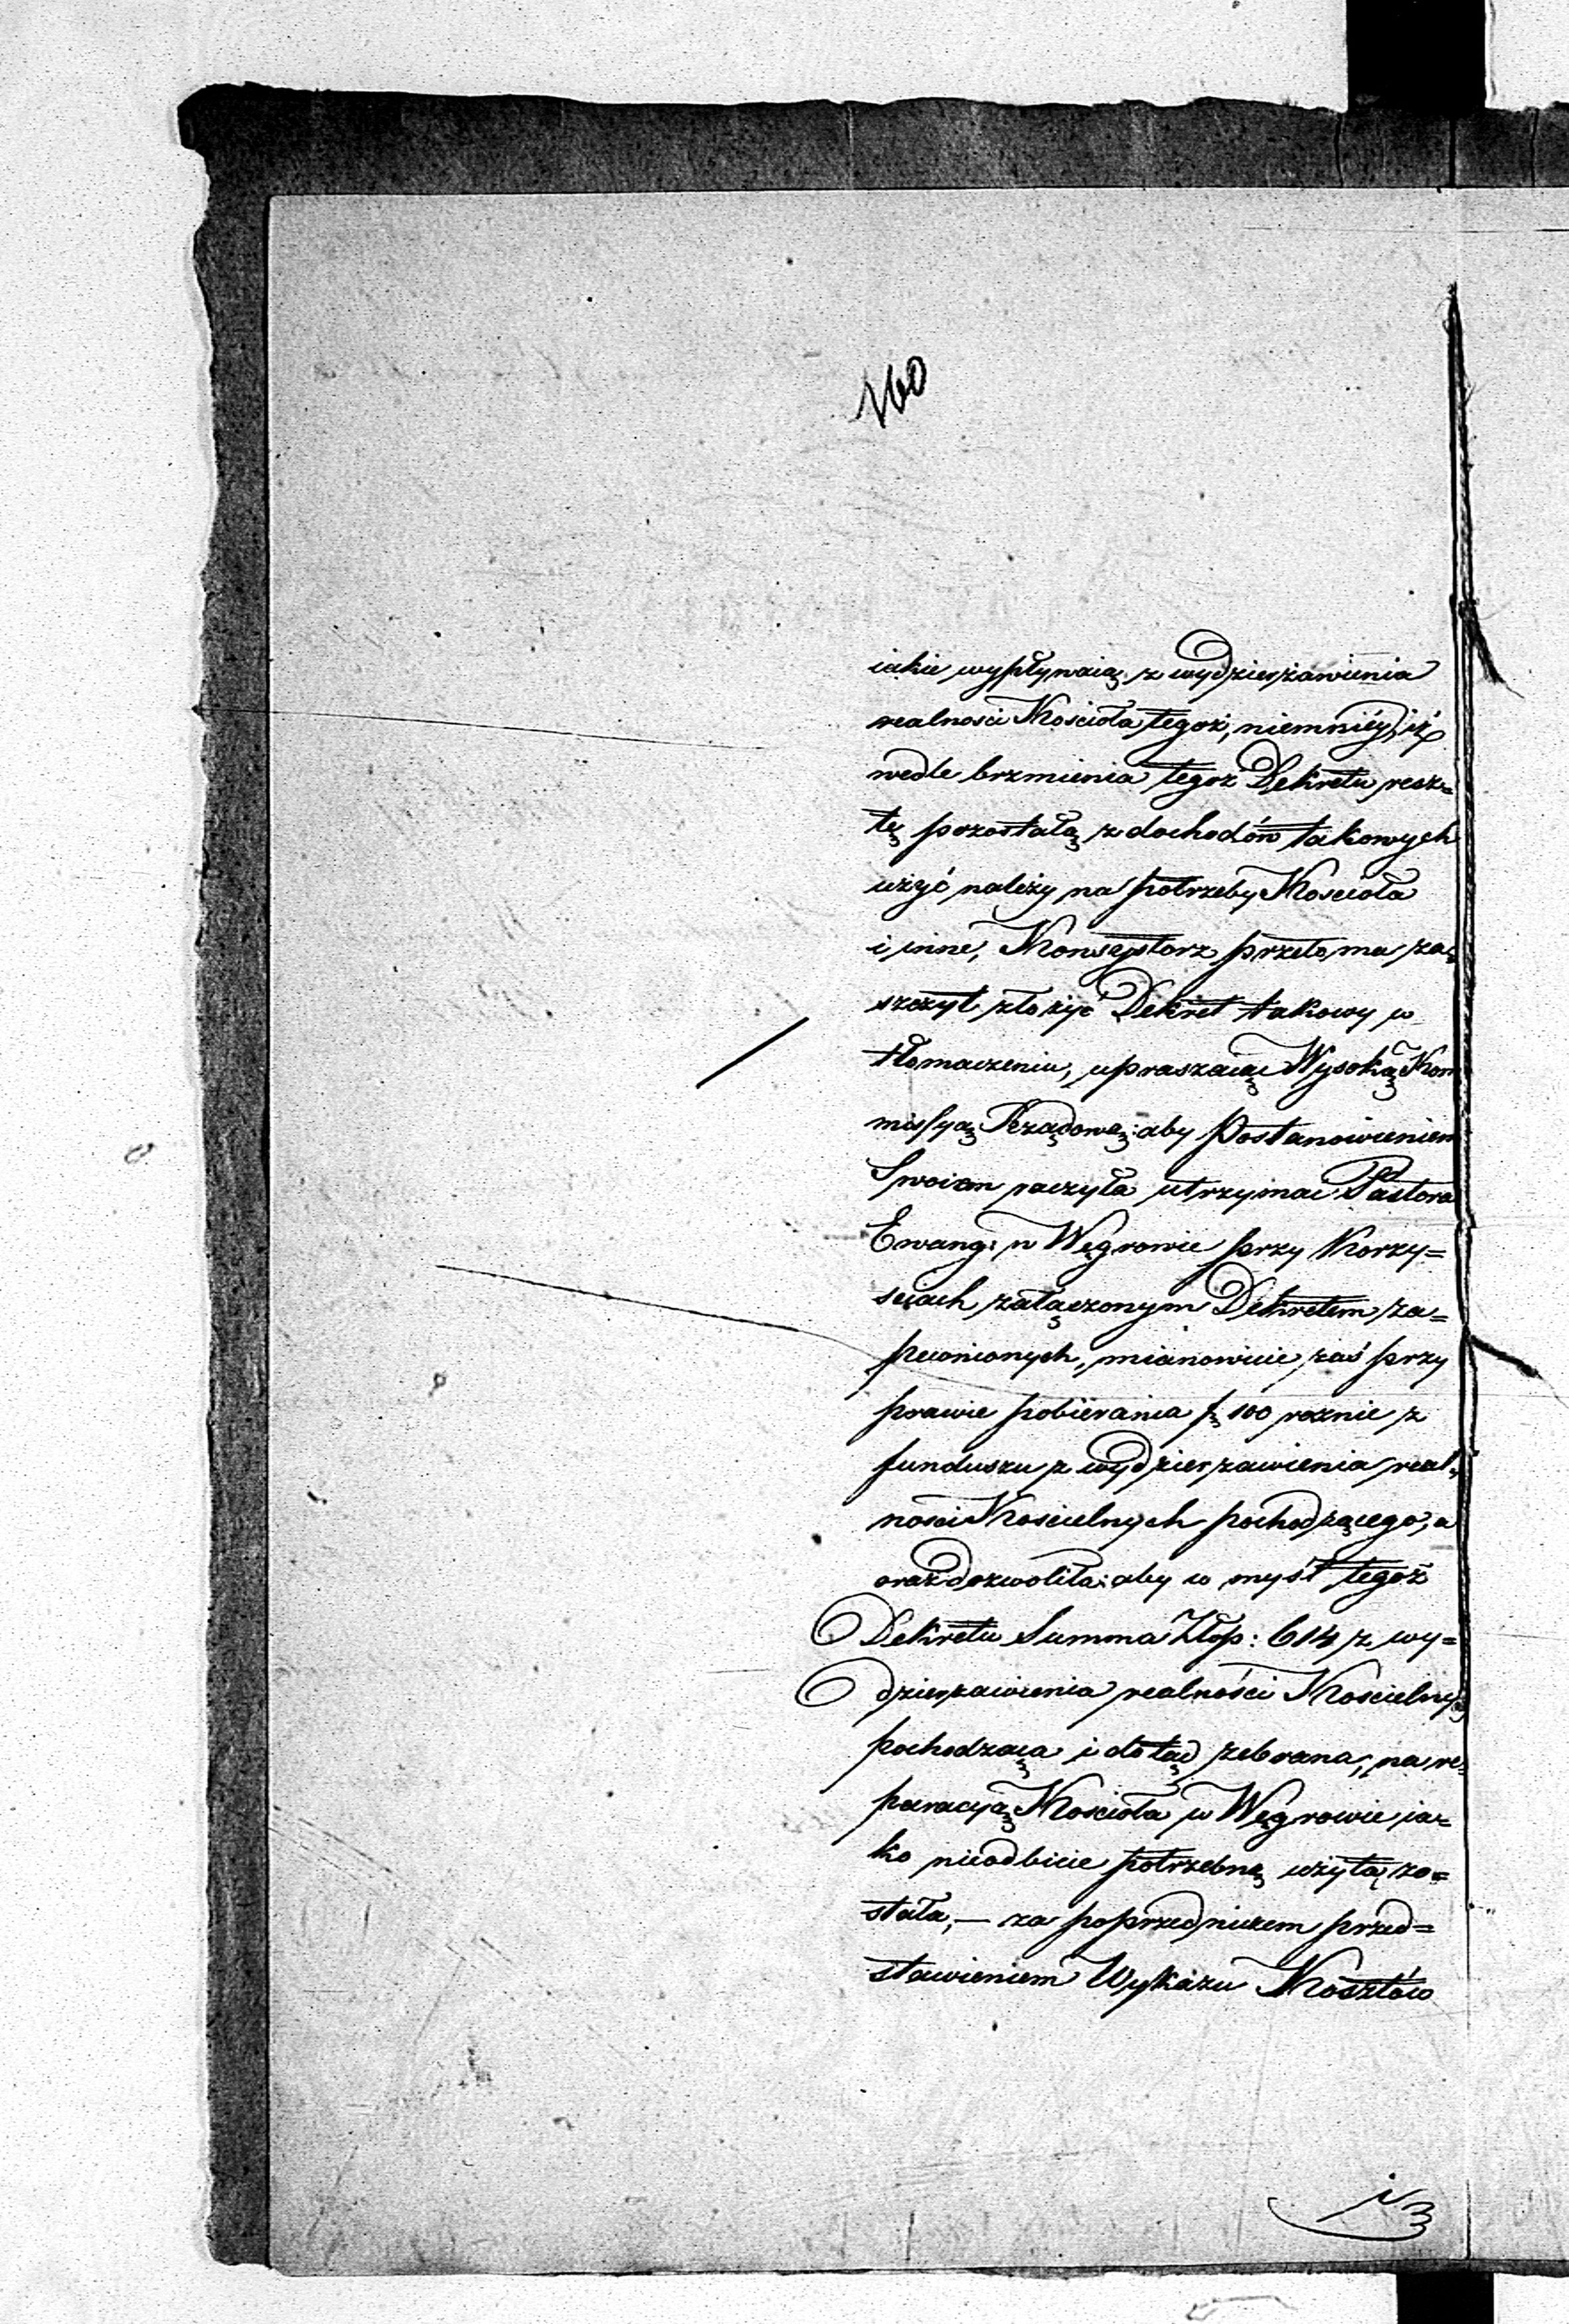 160
iakie wypływaią z wydzierżawienia
realności Kościoła tegoż, niemniéy, iż
wedle brzmienia tegoż Dekretu resz=
tę pozostałą z dochodów takowych
użyć należy na potrzeby Kościoła
i inne, Konsystorz przeto ma za=
szczyt złożyć Dekret takowy w
tłomaczeniu, upraszaiąc Wysoką Kom
missyą Rządową: aby Postanowieniem
Swoiem raczyła utrzymać Pastora
Ewang: w Węgrowie przy Korzy=
ściach załączonym Dekretem za=
pewnionych, mianowicie zaś przy
prawie pobierania 100 rocznie z
funduszu z wydzierzawienia real=
ności Kościelnych pochodzącego, a
oraz dozwoliła: aby w myśl tegoż
Dekretu Summa Złop: 614 z wy=
dzierzawienia realności Kościelnych
pochodząca i dotąd zebrana, na re=
paracyą Kościoła w Węgrowie ia=
ko nieodbicie potrzebną użytą zo=
stała, — za poprzedniczem przed=
stawieniem Wykazu Kosztów